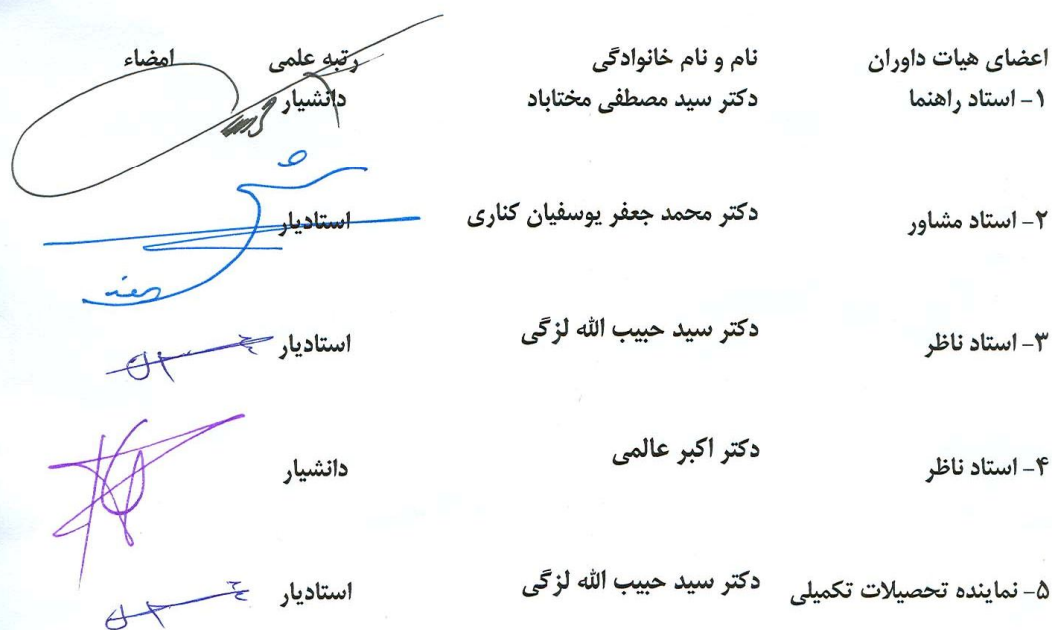 اعضای هیات داوران نام و نام خانوادگی رتبه علمی امضاء
۱- استاد راهنما دکتر سید مصطفی مختاباد دانشیار
۲- استاد مشاور دکتر محمد جعفر یوسفیان کناری استادیار
۳- استاد ناظر دکتر سید حبیب الله لزگی استادیار
۴- استاد ناظر دکتر اکبر عالمی دانشیار
۵- نماینده تحصیلات تکمیلی دکتر سید حبیب الله لزگی استادیار